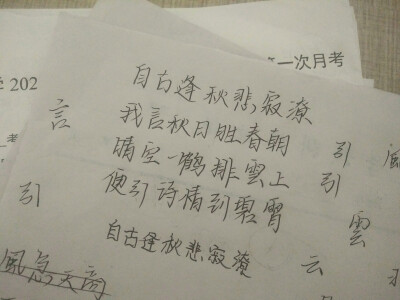 第一次月考
学 202
自古逢秋悲寂潦
我言秋日胜春朝
晴空一鹤排雲上
便引诗情到碧霄
自古逢秋悲寂潦
言
引
引 風
引
雲
云
風急天高